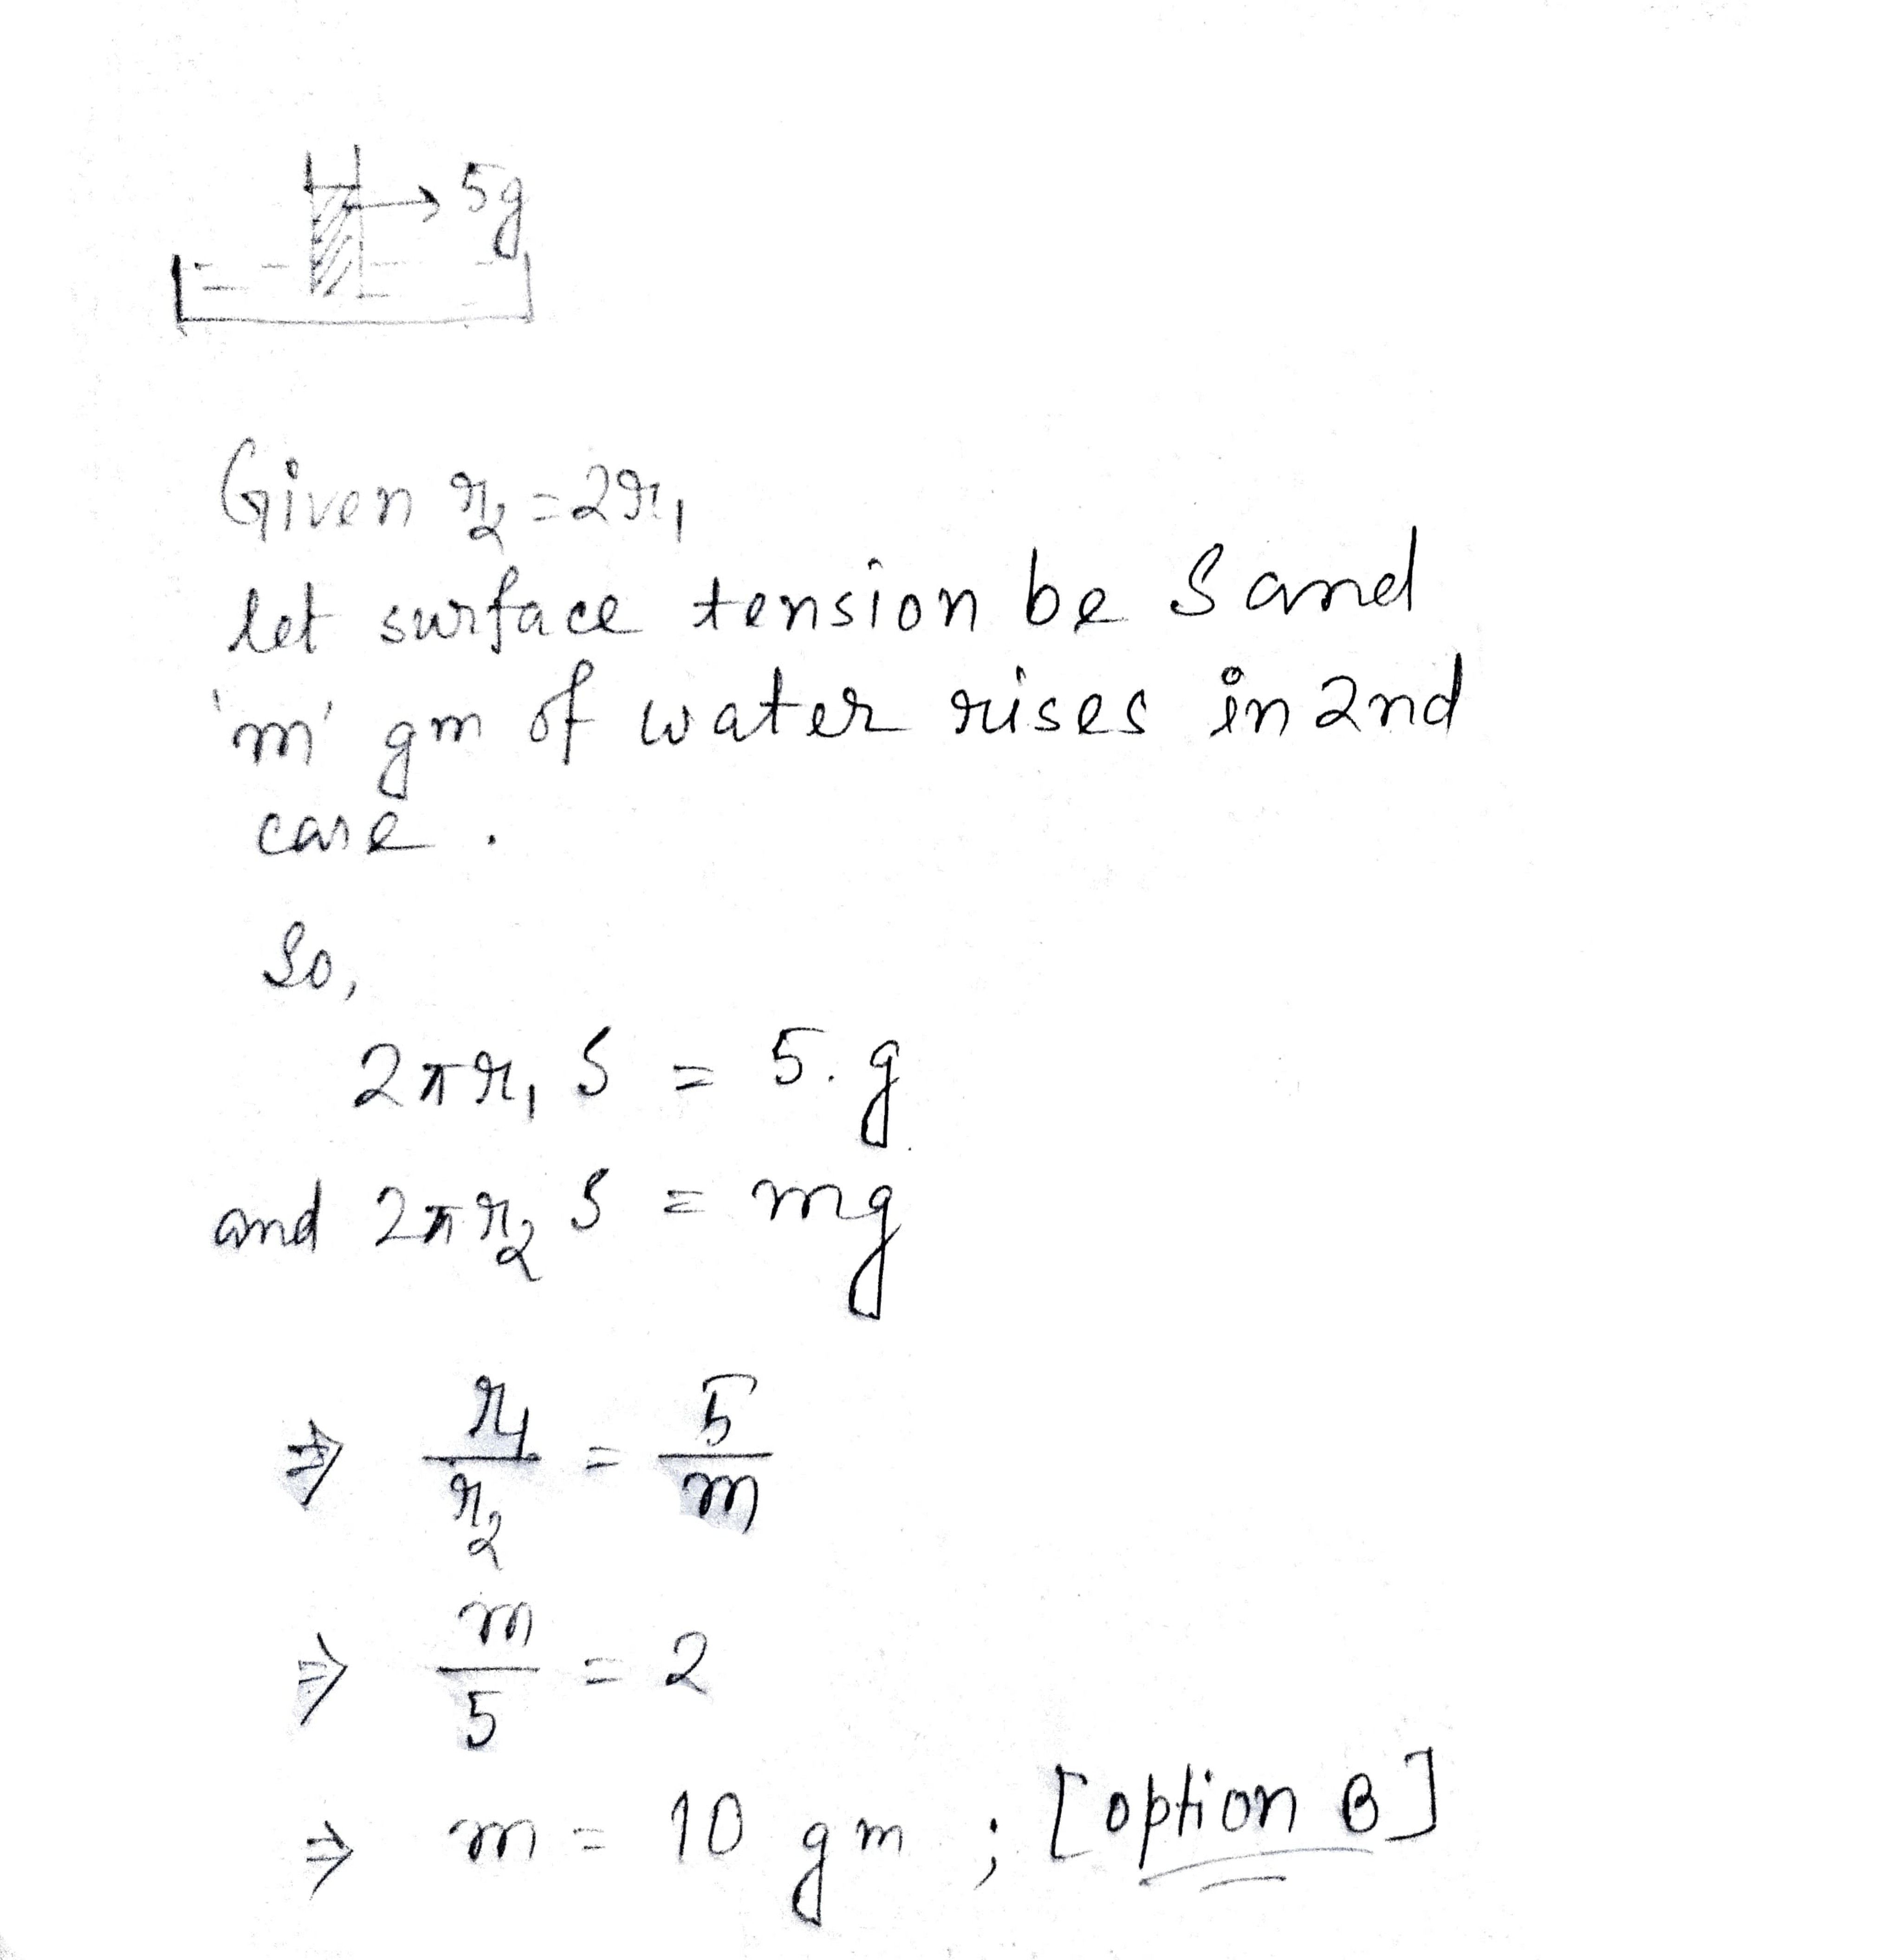 5g
Given r₂ = 2r₁
let surface tension be S and
'm' gm of water rises in 2nd
case .
So,
2πr₁ S = 5. g
and 2πr₂ S = mg
⇒ r₁/r₂ = 5/m
⇒ m/5 = 2
⇒ m = 10 gm ; [option B]